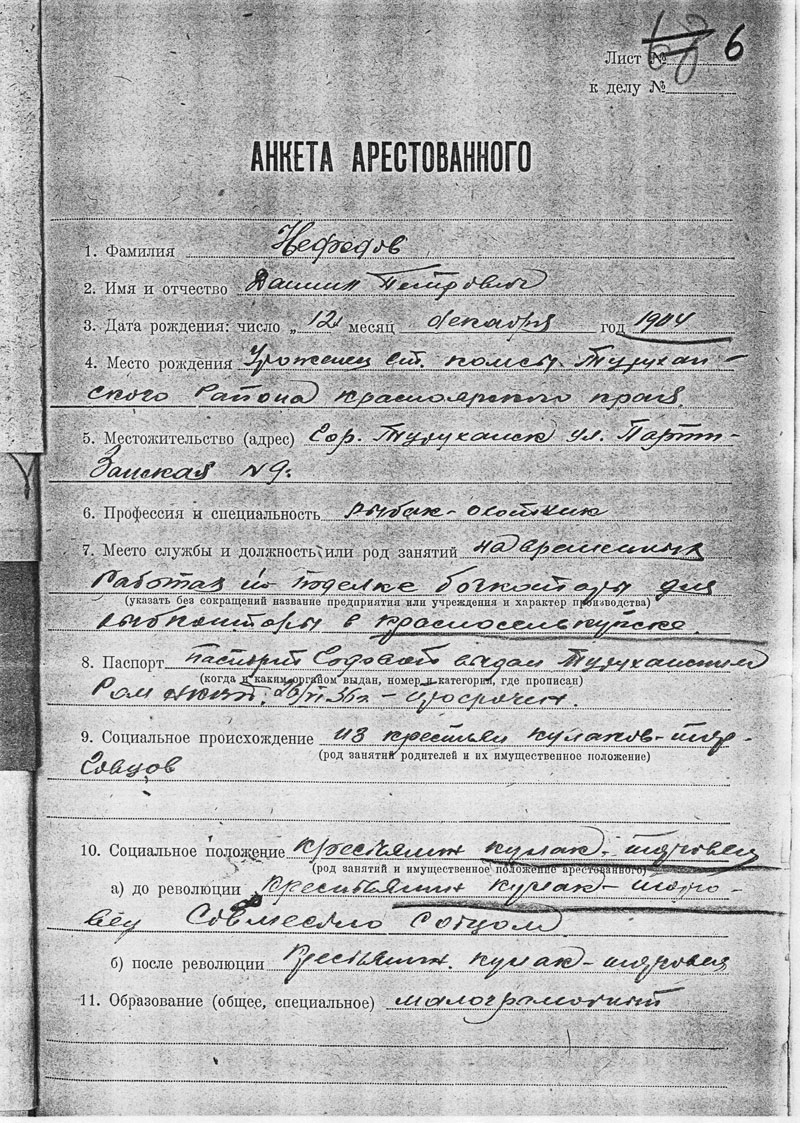 Лист № 6
к делу №
АНКЕТА АРЕСТОВАННОГО
1. Фамилия Нефедов
2. Имя и отчество Данил Петрович
3. Дата рождения: число „12" месяц декабря год 1904
4. Место рождения Уроженец ст. Турухан-
ского Района красноярского края
5. Местожительство (адрес) Туруханск ул. Парти-
Занская N 9.
6. Профессия и специальность рыбак-охотник
7. Место службы и должность или род занятий на
Работах по поделке бочкотары для
(указать без сокращений название предприятия или учреждения и характер производства)
рыбконторы в красноселькупске.
8. Паспорт Паспорт Годовой выдан Туруханским
(когда и каким органом выдан, номер и категория, где прописан)
Ром НКВД. 36г - просрочен.
9. Социальное происхождение из крестьян кулаков-тор-
(род занятий родителей и их имущественное положение)
говцов
10. Социальное положение крестьянин кулак-торговец
(род занятий и имущественное положение арестованного)
а) до революции крестьянин кулак-торго-
вец Совместно с отцом
б) после революции Крестьянин. кулак-торговец
11. Образование (общее, специальное) малограмотный